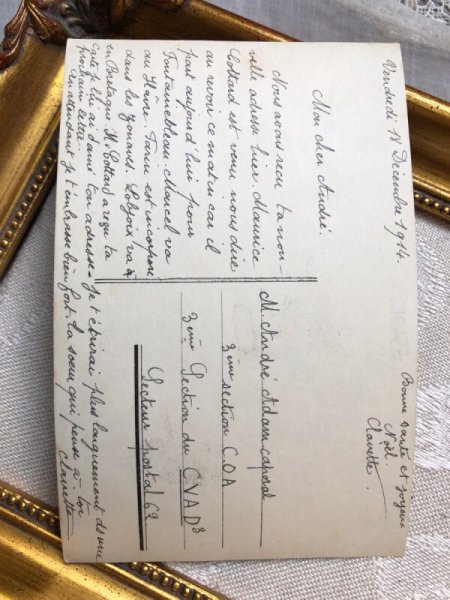 Vendredi 18 Décembre 1914.
Bonne santé et joyeux
Noël.
Clairette.
Mon cher André.
Nous avons reçu ta nou-
velle adresse hier. Maurice
Cottard est venu nous dire
au revoir ce matin car il
part aujourd'hui pour
Fontainebleau. Marcel va
au Havre. Tarin est incorporé
dans les Zouaves. Lobjoix va à
en Bretagne. M. Cottard a reçu ta
carte je lui ai donné ton adresse. Je t'écrirai plus longuement ds une
prochaine lettre.
En attendant je t'embrasse bien fort. Ta soeur qui pense à toi
Clairette
M. André Adam caporal
3ème section C.O.A
3ème Section du CVAD3
Secteur postal 69